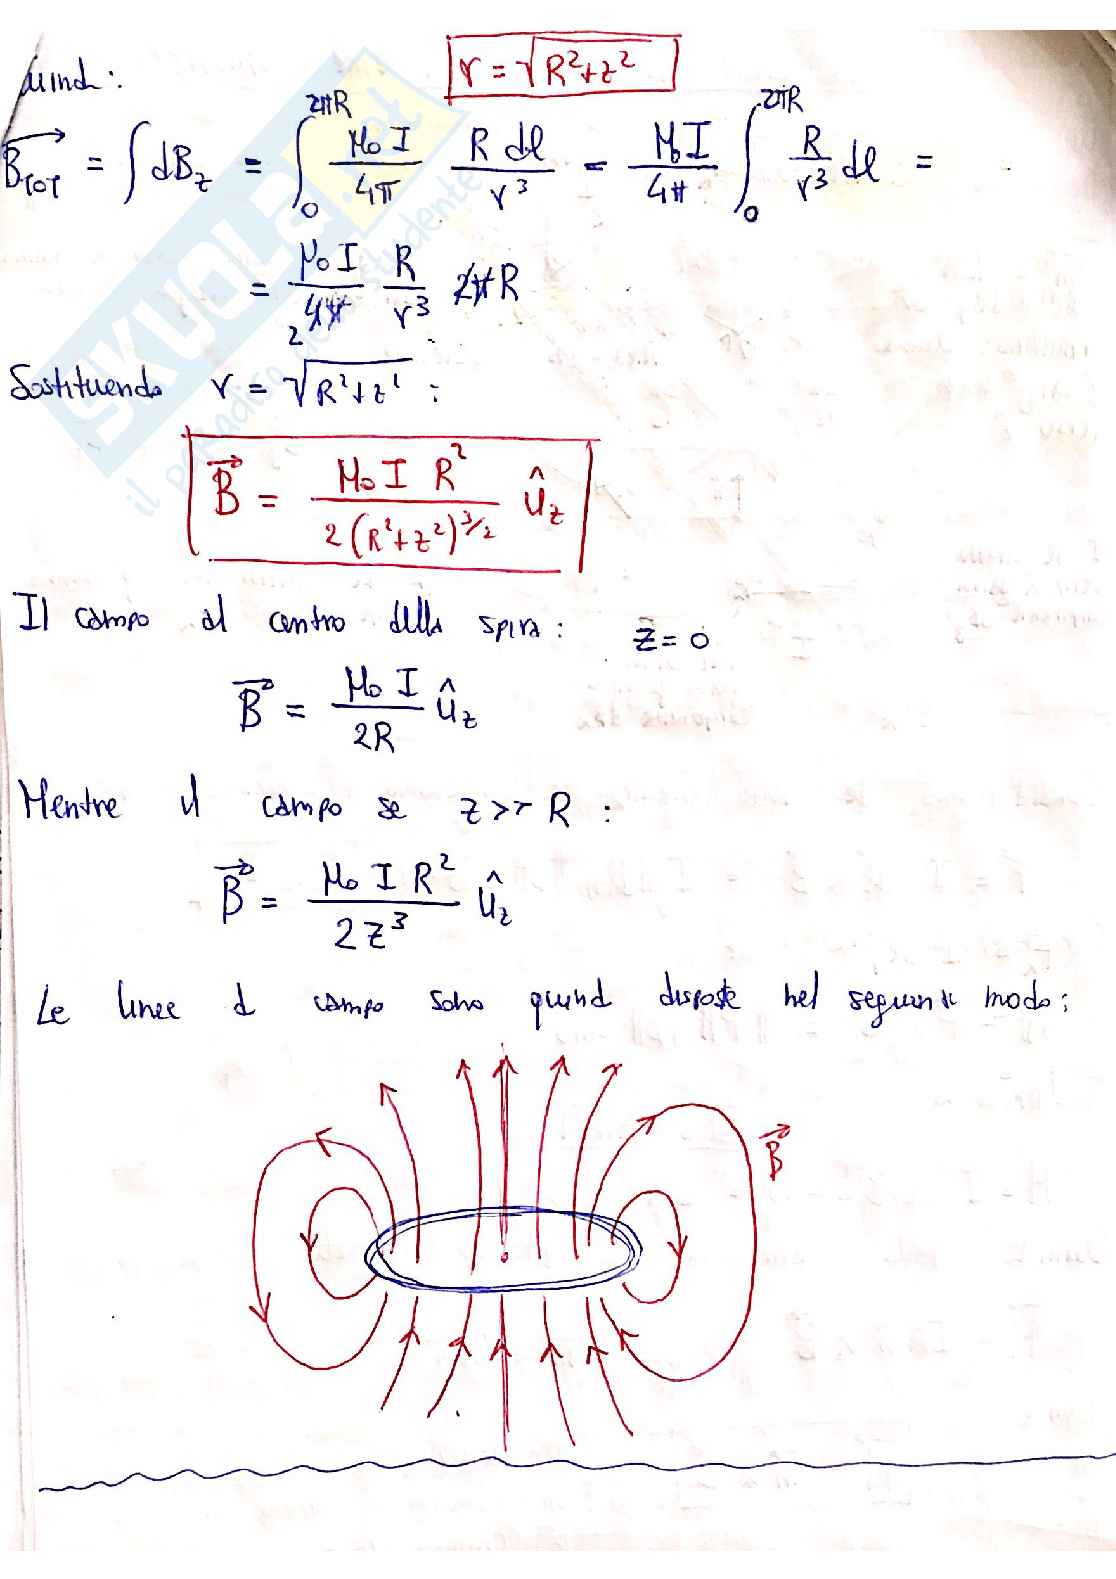 r = √R²+z²
quindi:
B⃗TOT = ∫ dBz = ∫₀^2πR μ₀ I / 4π R dl / r³ = μ₀ I / 4π ∫₀^2πR R / r³ dl =
= μ₀ I / 4π R / r³ 2π R
2
Sostituendo r = √R²+z² :
B⃗ = μ₀ I R² / 2(R²+z²)^3/2 ûz
Il campo al centro della spira: z = 0
B⃗ = μ₀ I / 2R ûz
Mentre il campo se z >> R :
B⃗ = μ₀ I R² / 2z³ ûz
Le linee di campo sono quindi disposte nel seguente modo:
B⃗
SKUOLA.net
il paradiso dello studente